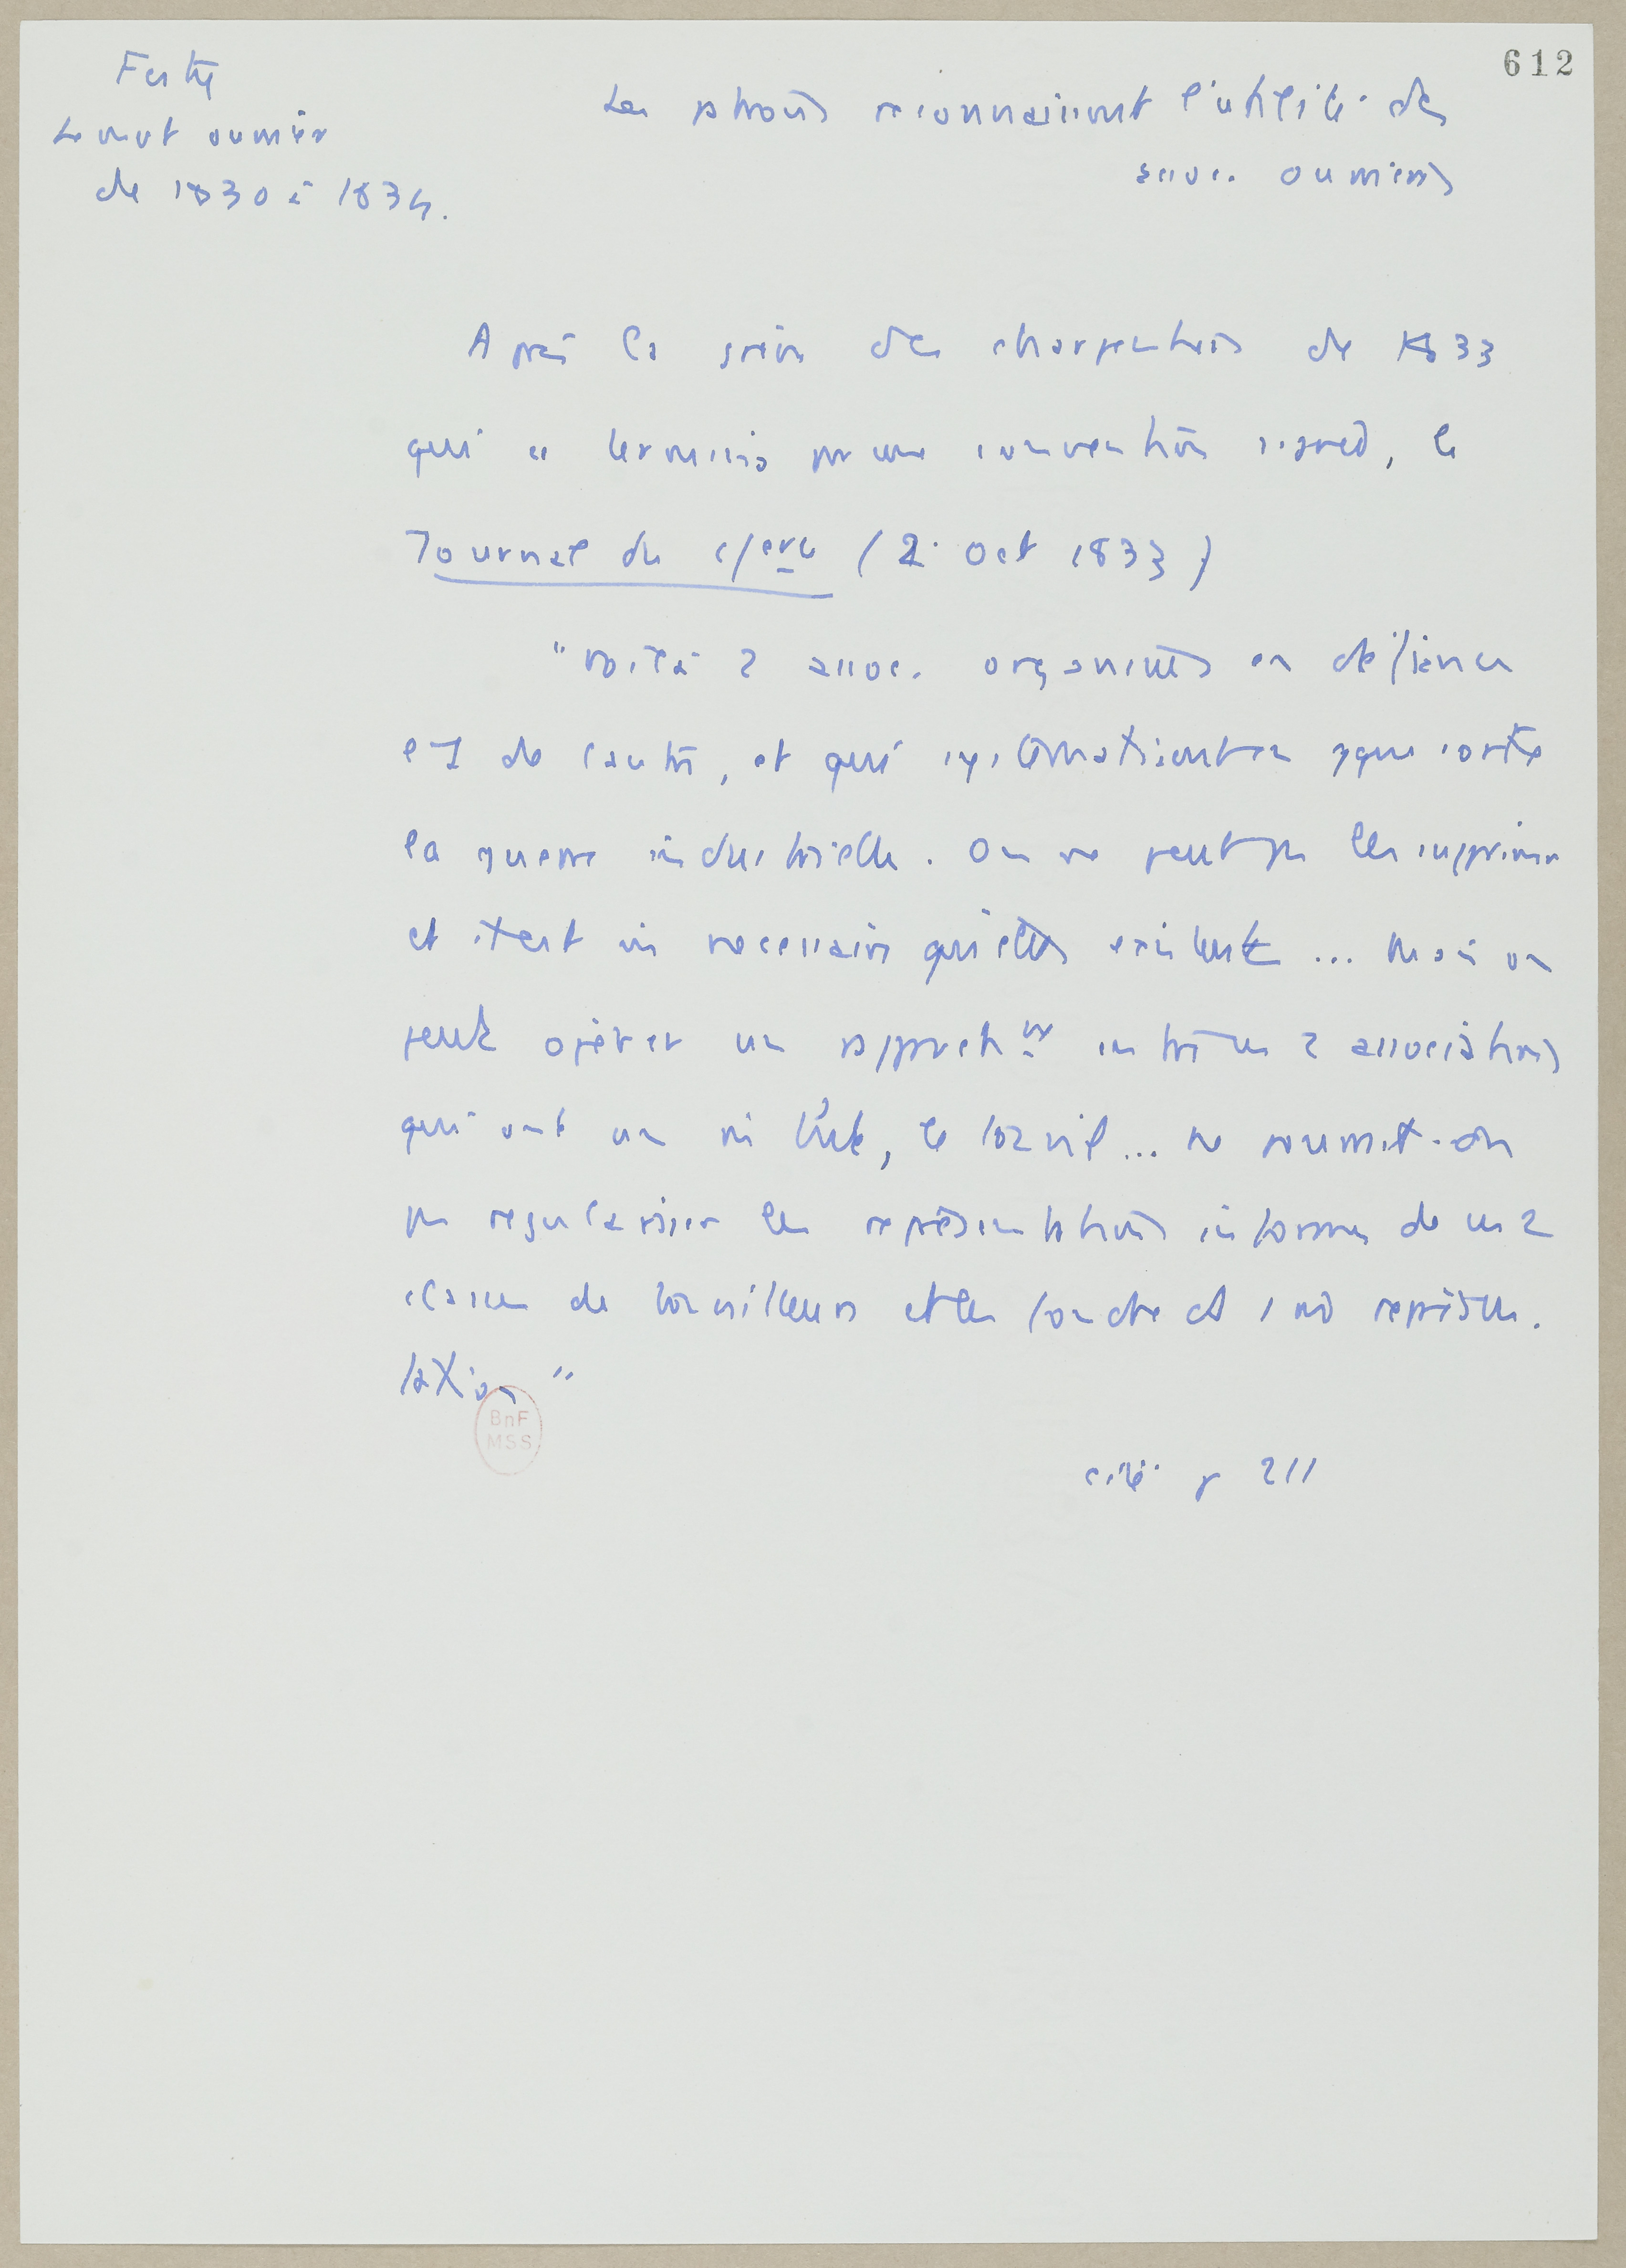 612
Festy
Le mvt ouvrier
de 1830 à 1834.
Les patrons reconnaissent l'utilité des
assoc. ouvrières
Après la grève des charpentiers de 1833
qui se termina par une convention signée, le
Journal du c/erce (2 oct 1833)
"Voilà 2 assoc. organisées en défiance
l'1 de l'autre, et qui systématisent en quelque sorte
la guerre industrielle. On ne peut pas les supprimer
et il est nécessaire qu'elles existent ... Mais on
peut opérer un rapproch nt entre ces 2 associations
qui ont un but, le travail ... ne pourrait-on
pas régulariser les représentations informes de ces 2
classes de travailleurs et les fondre et 1 représen.
tation"
BnF
MSS
cité p 211